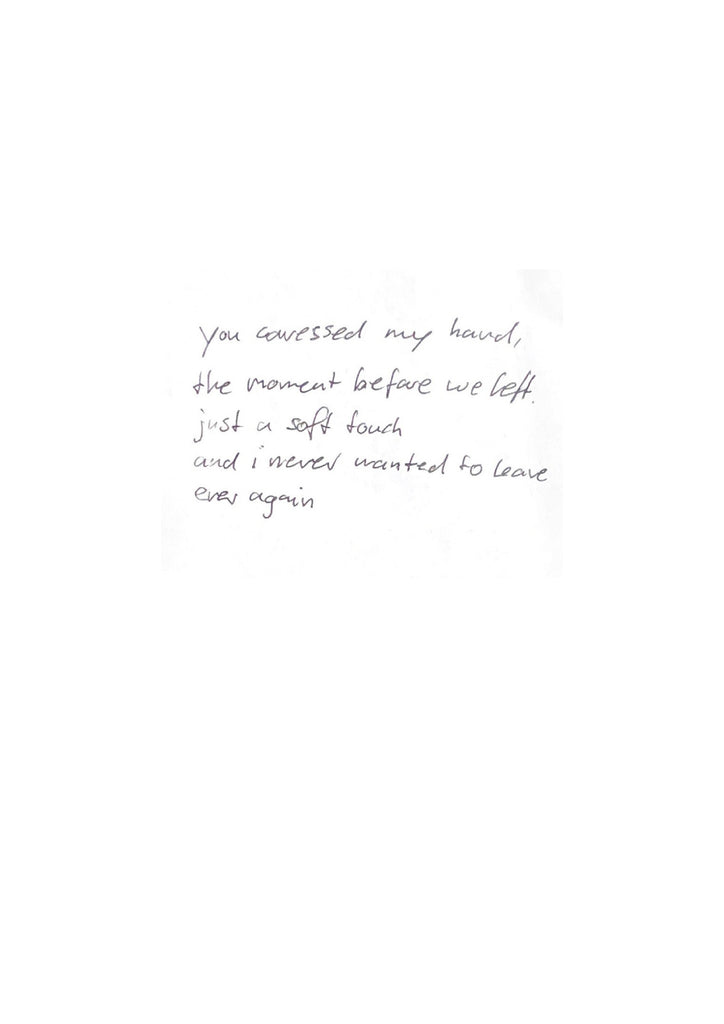 you caressed my hand,
the moment before we left.
just a soft touch
and i never wanted to leave
ever again